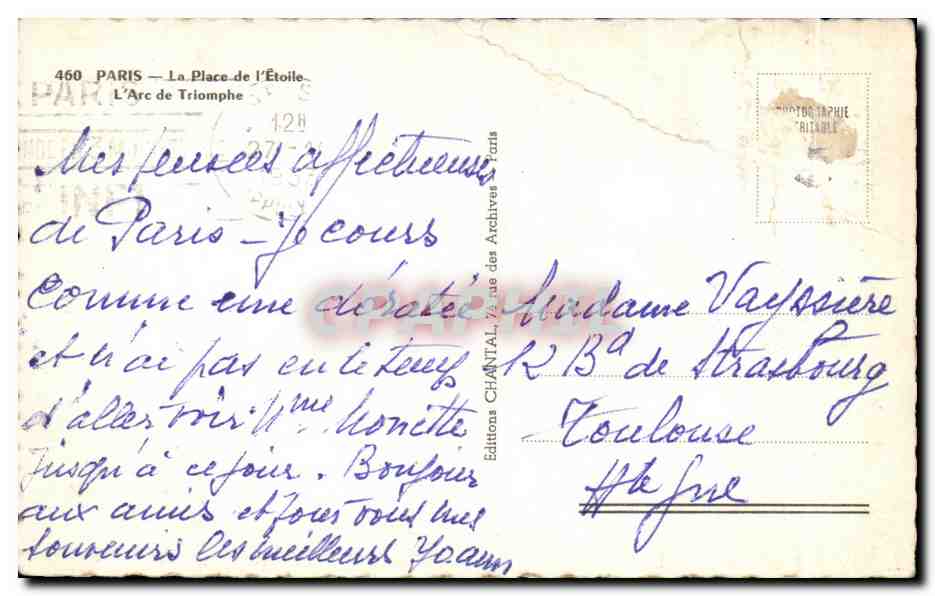 460 PARIS — La Place de l'Étoile
L'Arc de Triomphe
PARIS
12H
Mes pensées affectueuses
de Paris – Je cours
comme une dératée
et n'ai pas eu le temps
d'aller voir Mme
jusqu'à ce jour. Bonjour
aux amis et pour vous mes
souvenirs les meilleurs
Editions CHANTAL, 74 rue des Archives Paris
PHOTOGRAPHIE
VERITABLE
Madame Vayssière
12 Bd de Strasbourg
Toulouse
Hte Gne